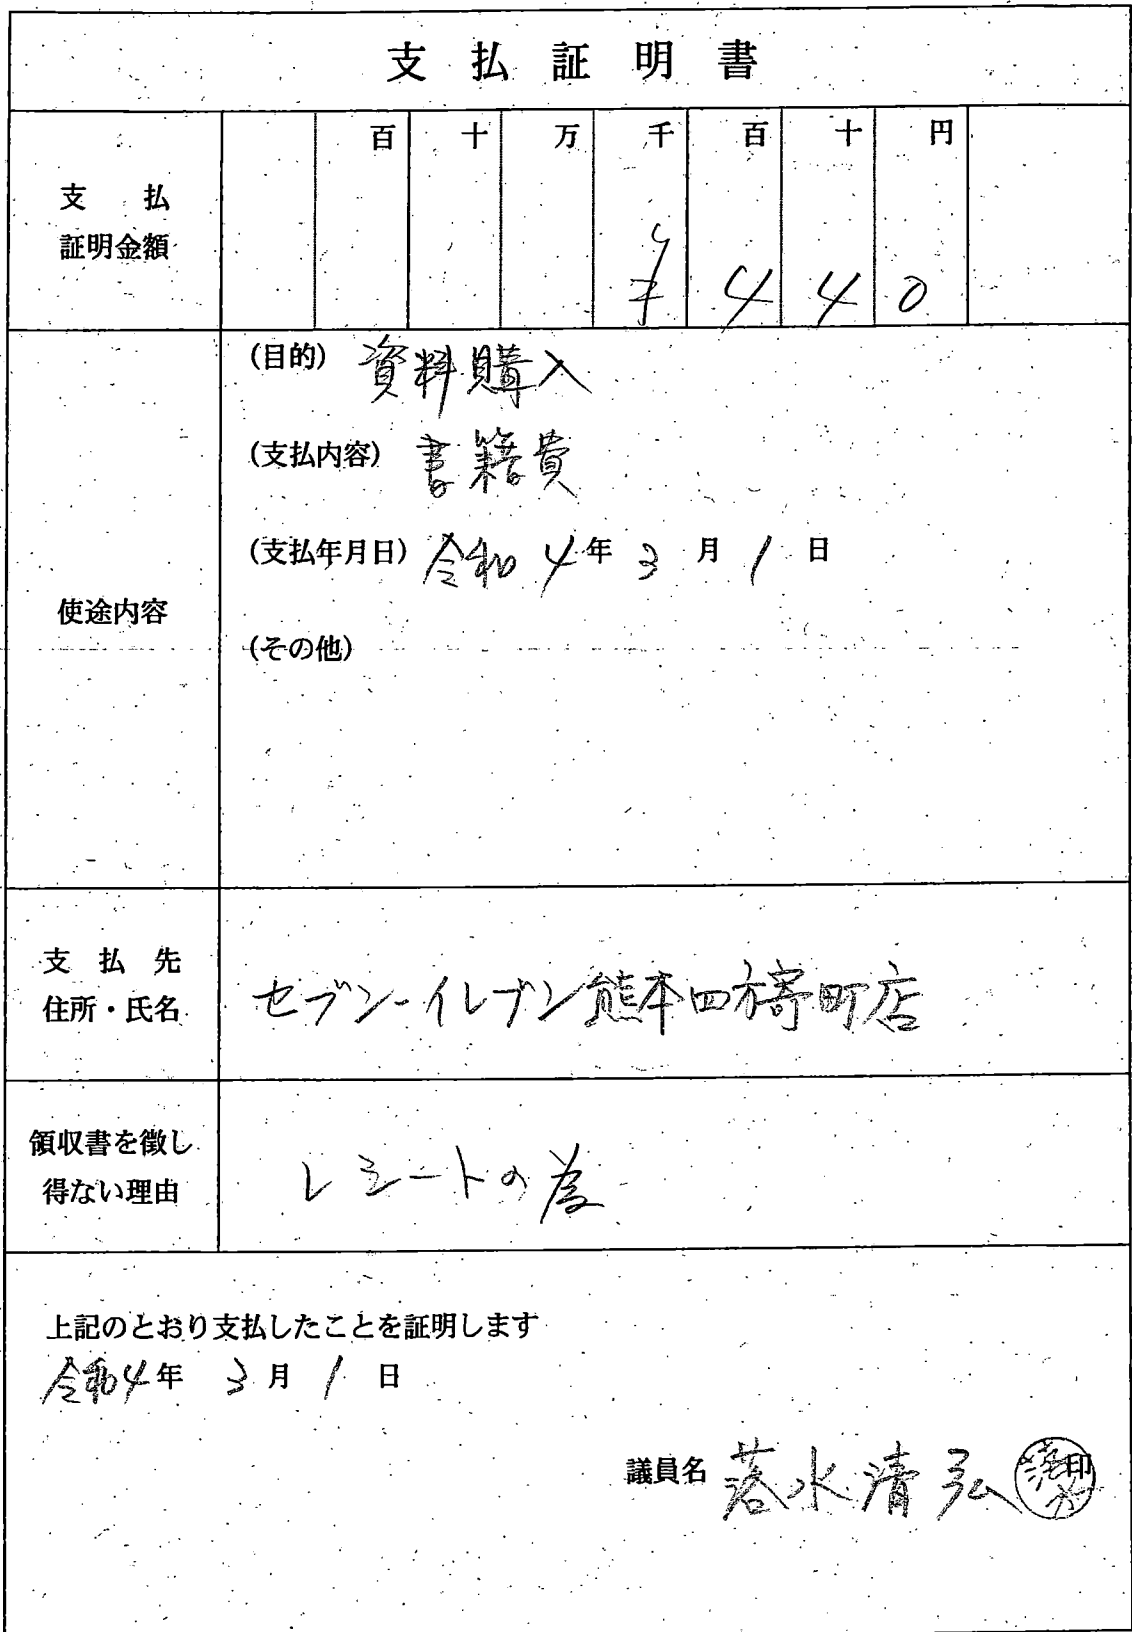 支払証明書
百 十 万 千 百 十 円
支払
証明金額
¥ 4 4 0
(目的) 資料購入
(支払内容) 書籍費
(支払年月日) 令和 4 年 3 月 1 日
使途内容
(その他)
支払先
住所・氏名
セブン-イレブン熊本四方寄町店
領収書を徴し
得ない理由
レシートの為
上記のとおり支払したことを証明します
令和4年 3月 1日
議員名 落水清弘 印